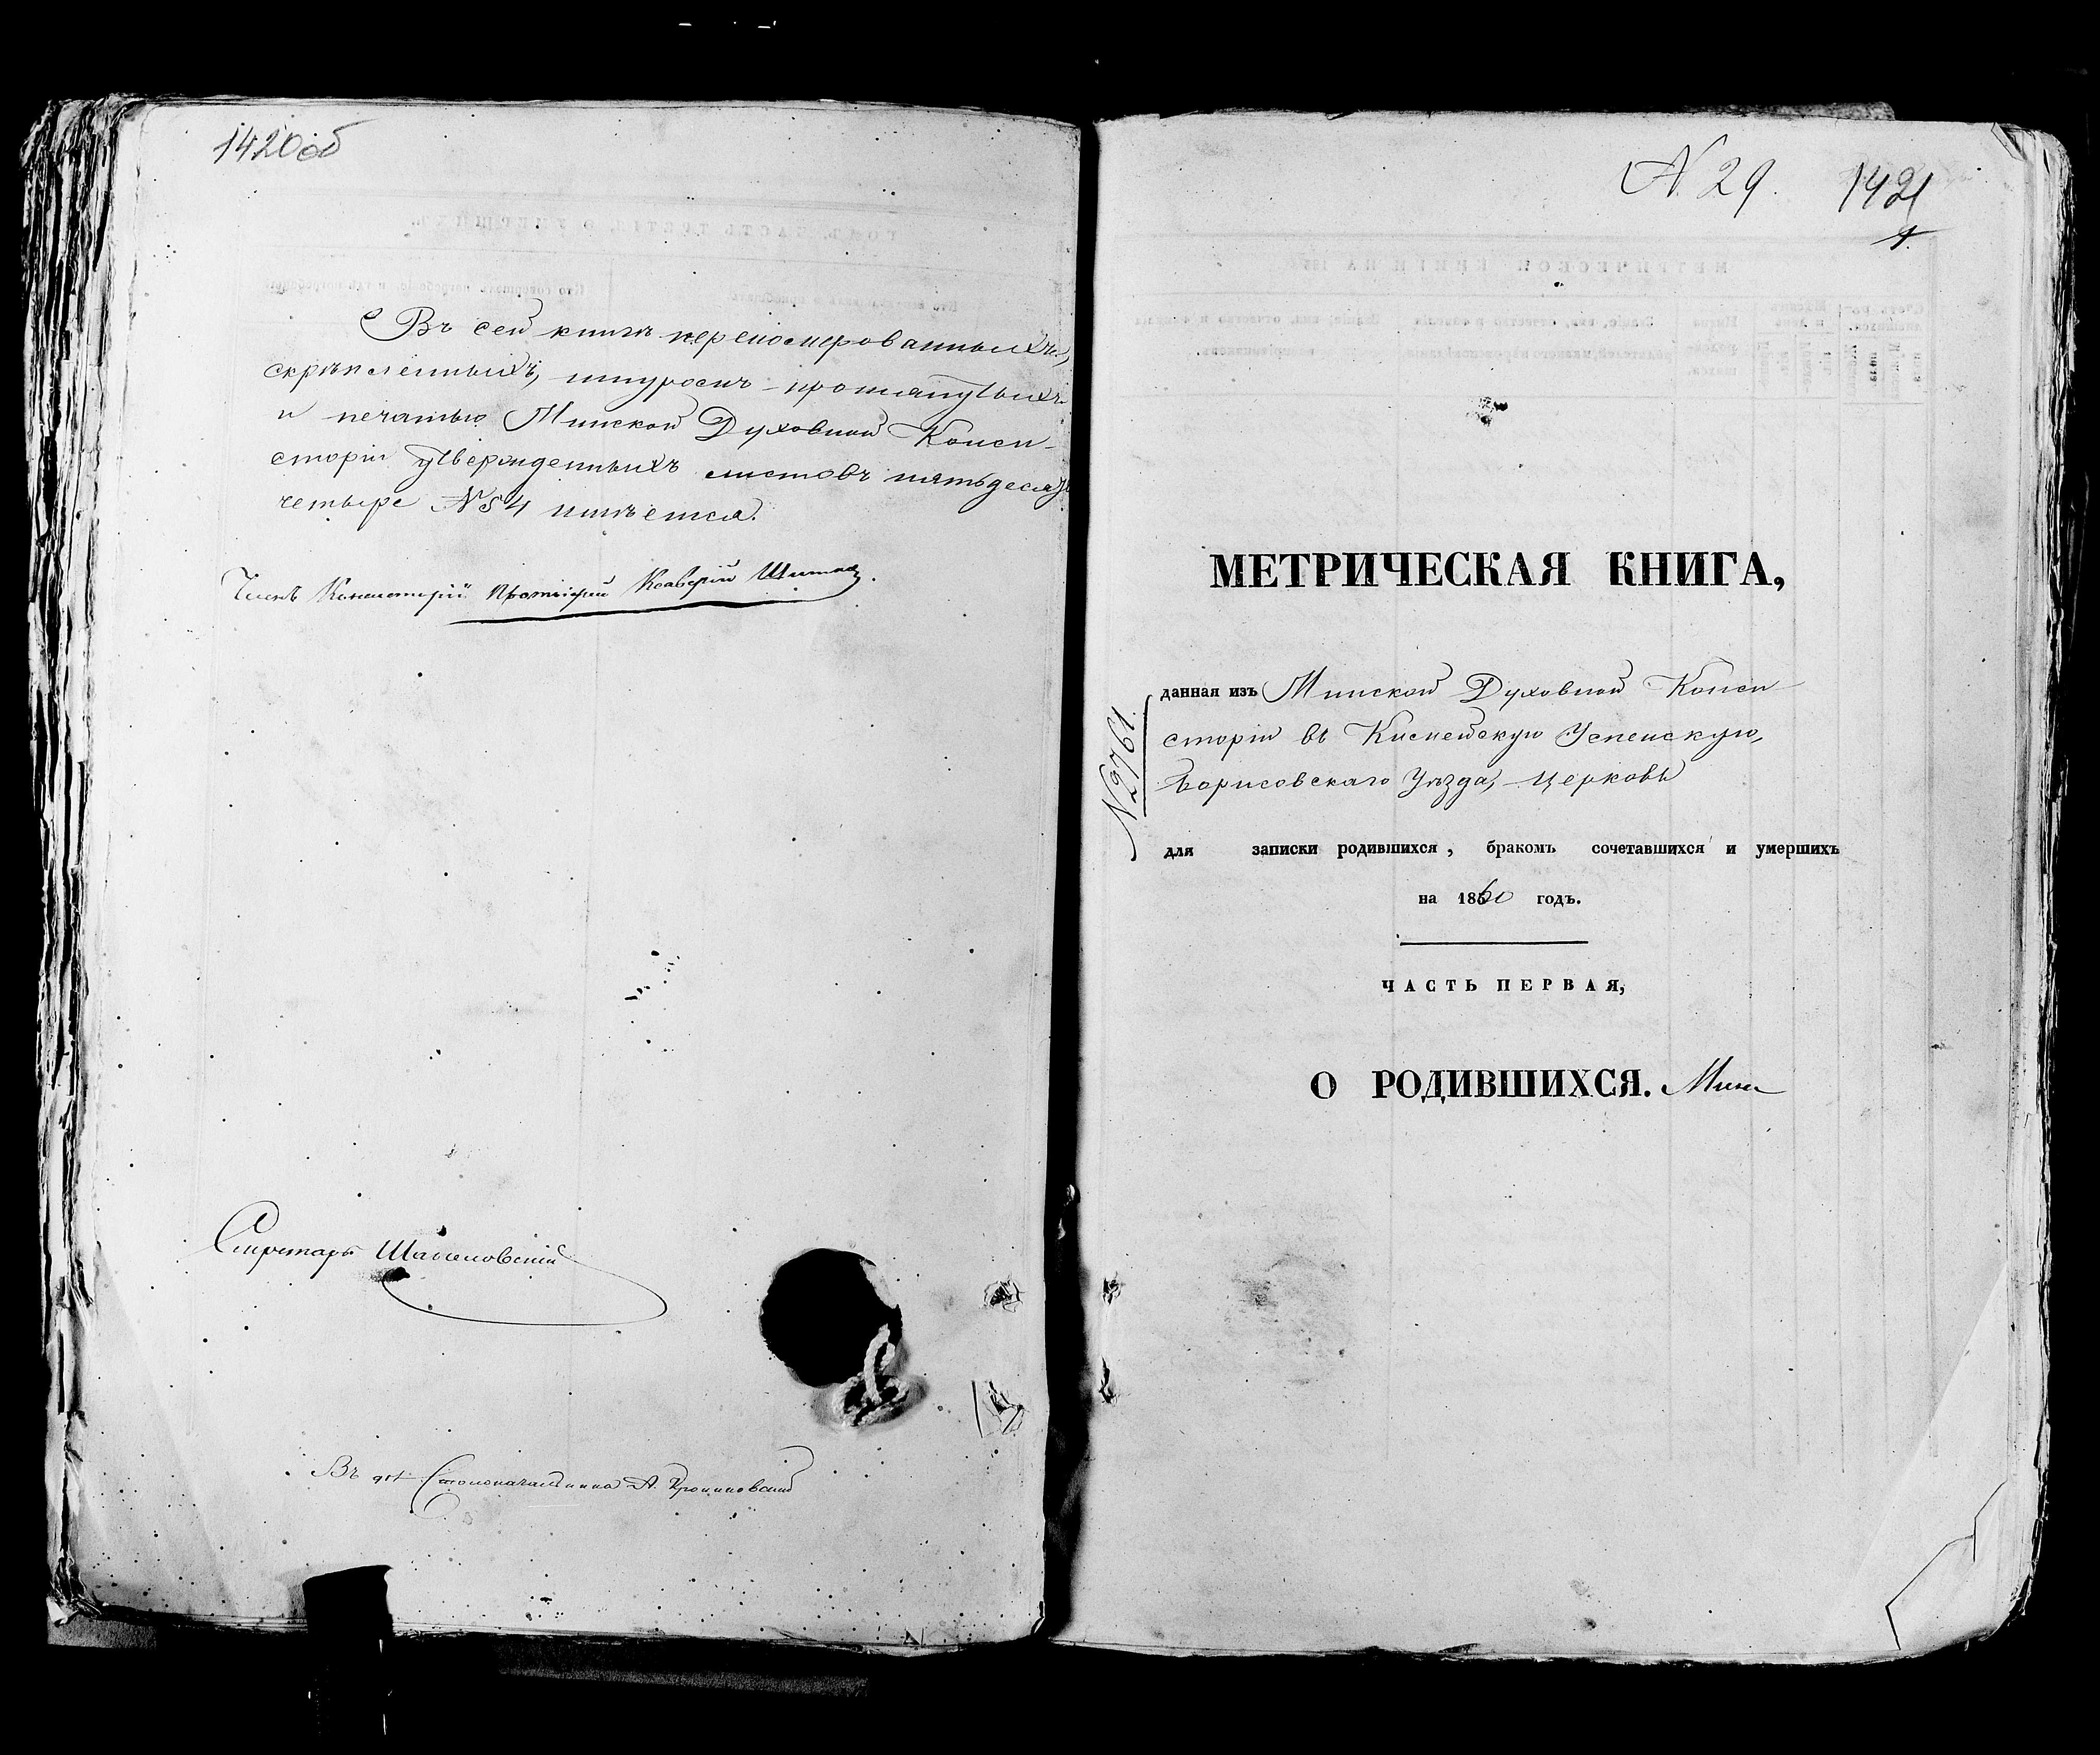 1420 об
Въ сей книгѣ перекомерованныхъ,
скрѣпленныхъ, шнуромъ - протянутыхъ
и печатью Минской Духовной Конси-
сторіи утвержденныхъ листовъ пятьдесятъ
четыре №54 имѣется.
Членъ Консисторіи Протоіерей Ксаверій
Секретарь
Въ Столоначальника А.
N 29. 1421
1.
МЕТРИЧЕСКАЯ КНИГА,
данная изъ Минской Духовной Конси-
сторіи въ Успенскую,
Борисовскаго Уѣзда, - церковь
N 2761
для записки родившихся, бракомъ сочетавшихся и умершихъ
на 1860 годъ.
ЧАСТЬ ПЕРВАЯ,
О РОДИВШИХСЯ.